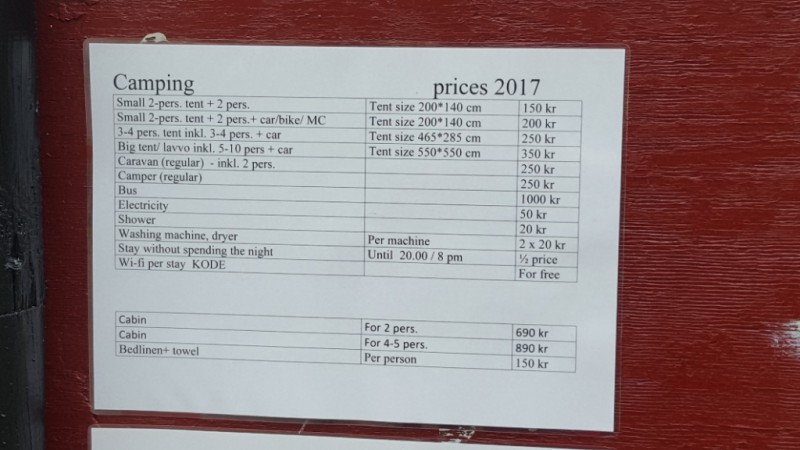 Camping prices 2017
Small 2-pers. tent + 2 pers. Tent size 200*140 cm 150 kr
Small 2-pers. tent + 2 pers.+ car/bike/ MC Tent size 200*140 cm 200 kr
3-4 pers. tent inkl. 3-4 pers. + car Tent size 465*285 cm 250 kr
Big tent/ lavvo inkl. 5-10 pers + car Tent size 550*550 cm 350 kr
Caravan (regular) - inkl. 2 pers. 250 kr
Camper (regular) 250 kr
Bus 1000 kr
Electricity 50 kr
Shower 20 kr
Washing machine, dryer Per machine 2 x 20 kr
Stay without spending the night Until 20.00 / 8 pm ½ price
Wi-fi per stay KODE For free
Cabin For 2 pers. 690 kr
Cabin For 4-5 pers. 890 kr
Bedlinen+ towel Per person 150 kr